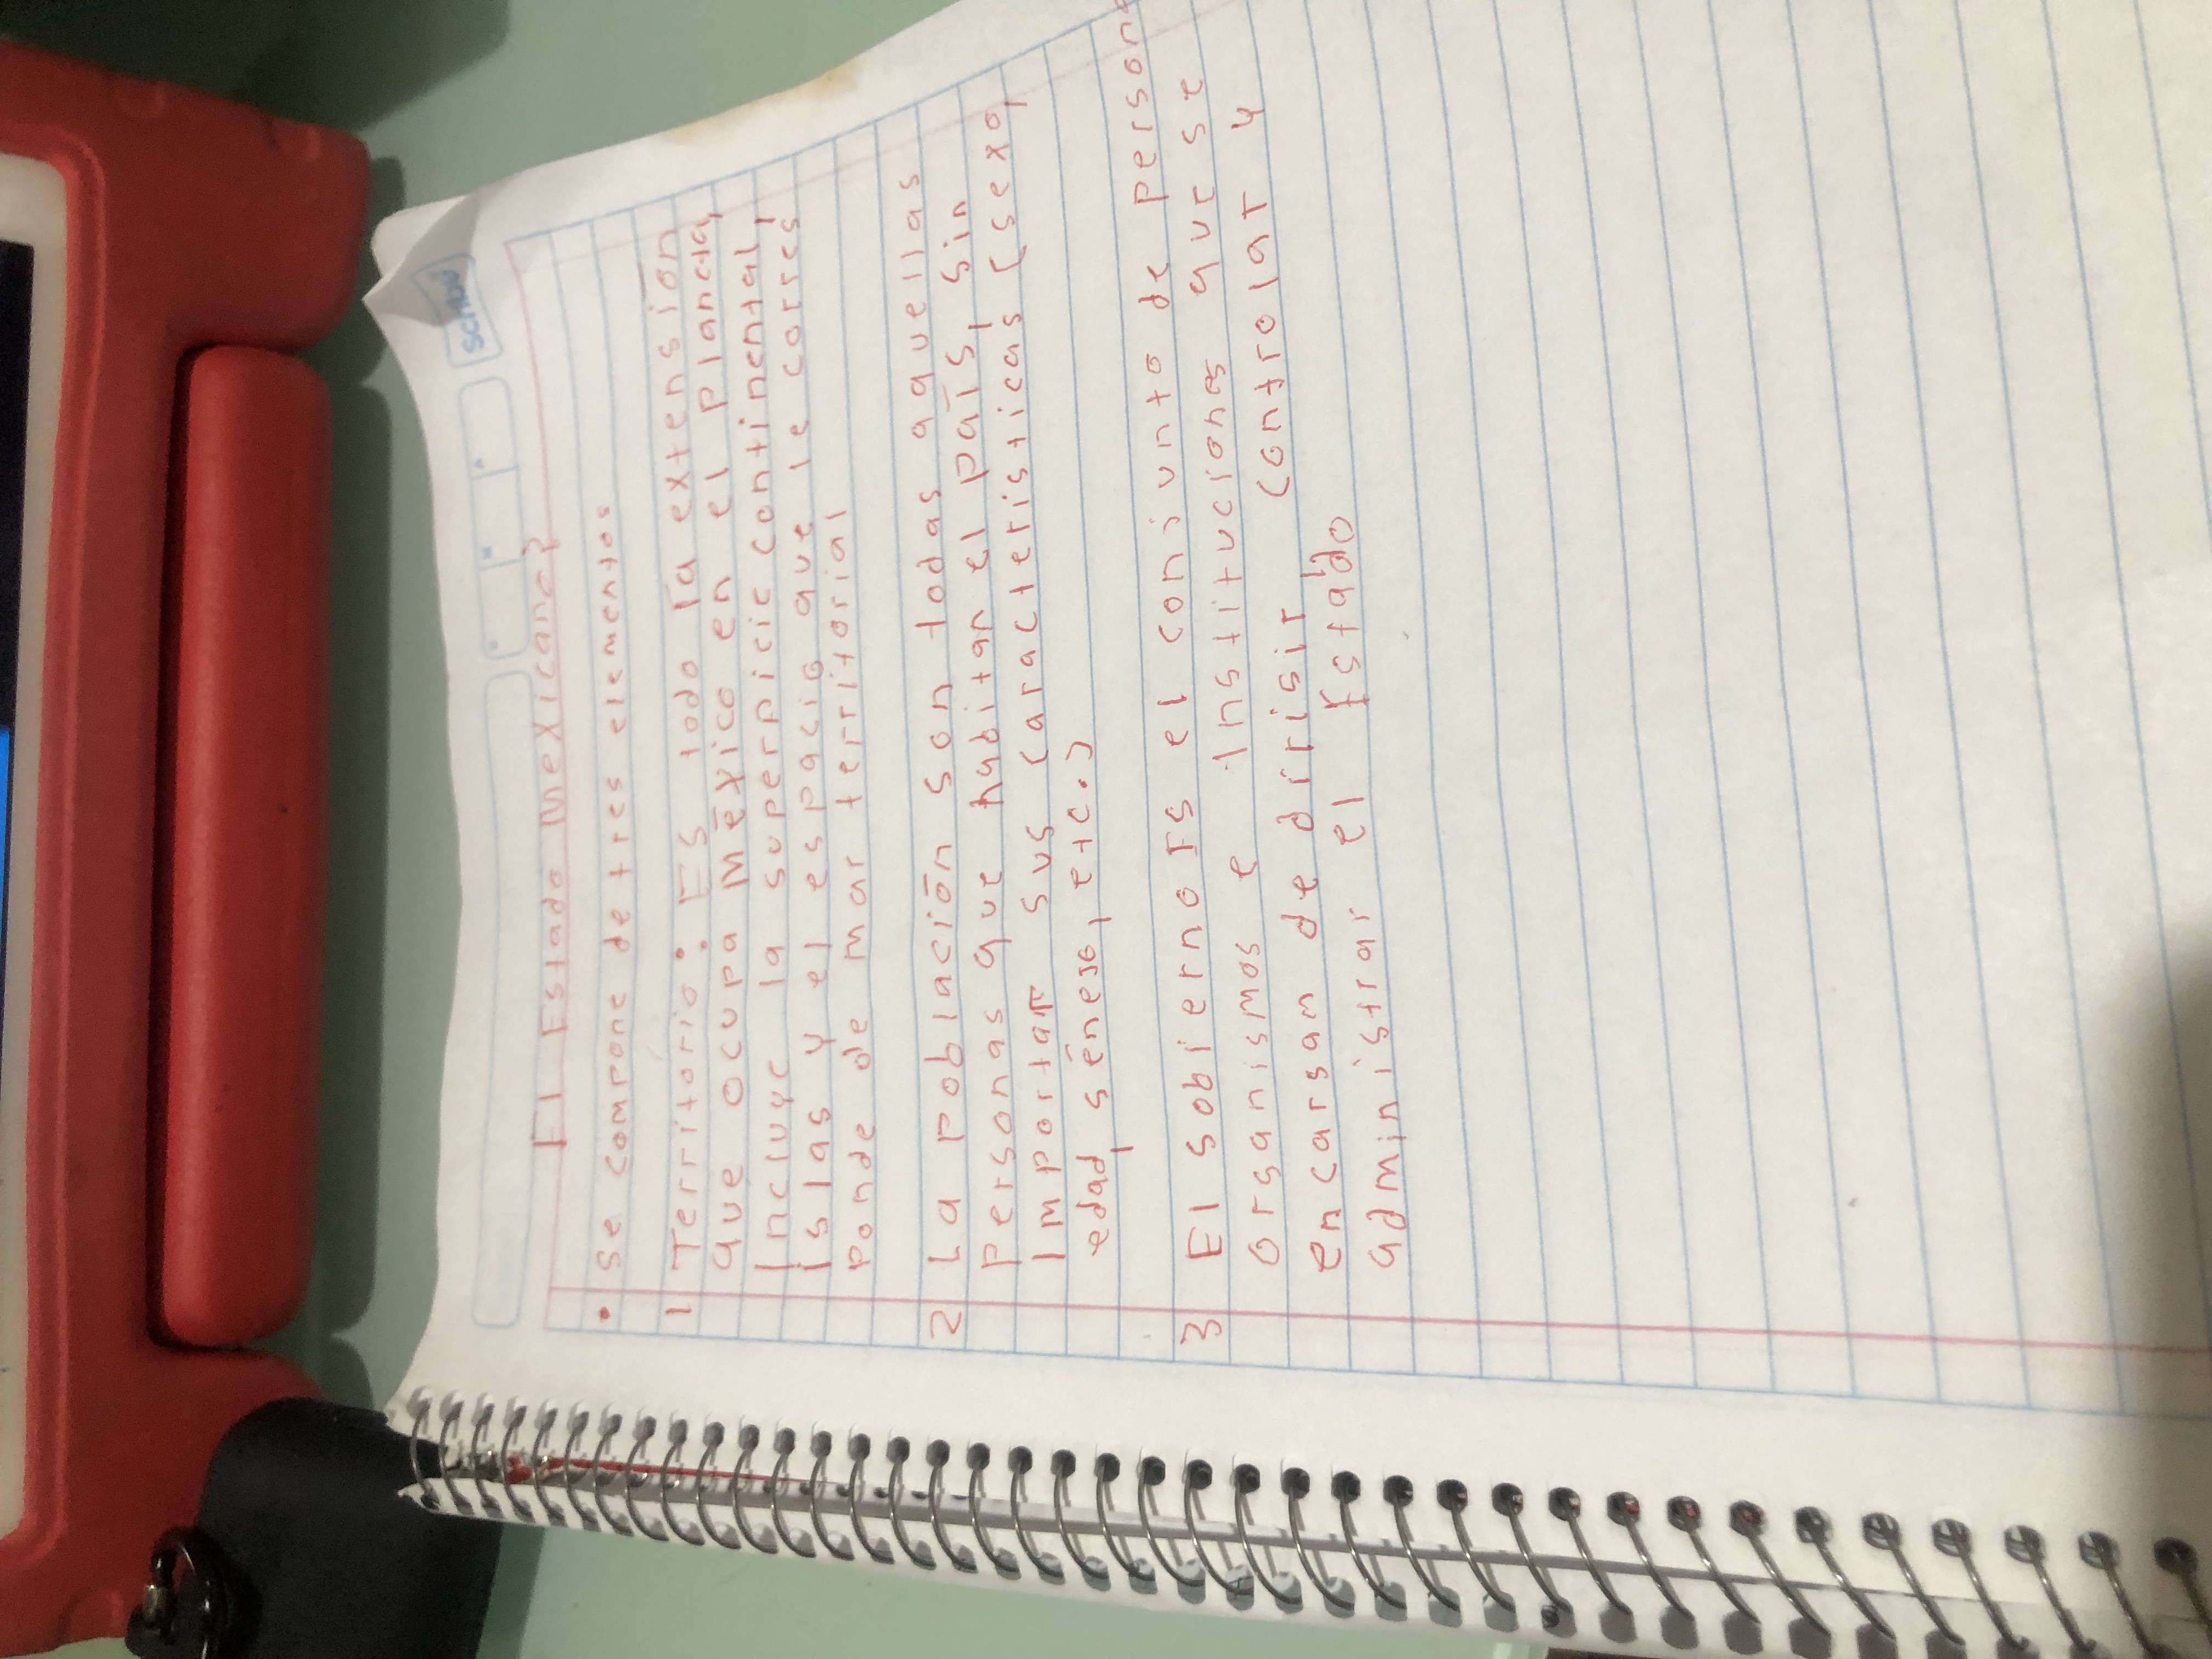 scribe
El Estado Mexicano?
• Se compone de tres elementos
1 Territorio: Es todo la extensión
que ocupa México en el planeta,
Incluye la superpicie continental,
islas y el espacio que le corres
ponde de mar territorial
2 La población son todas aquellas
personas que habitan el país, sin
Importar sus características (sexo,
edad, género, etc.)
3 El gobierno Es el conjunto de persona
organismos e Instituciones que se
encargan de dirigir, controlar y
administrar el Estado